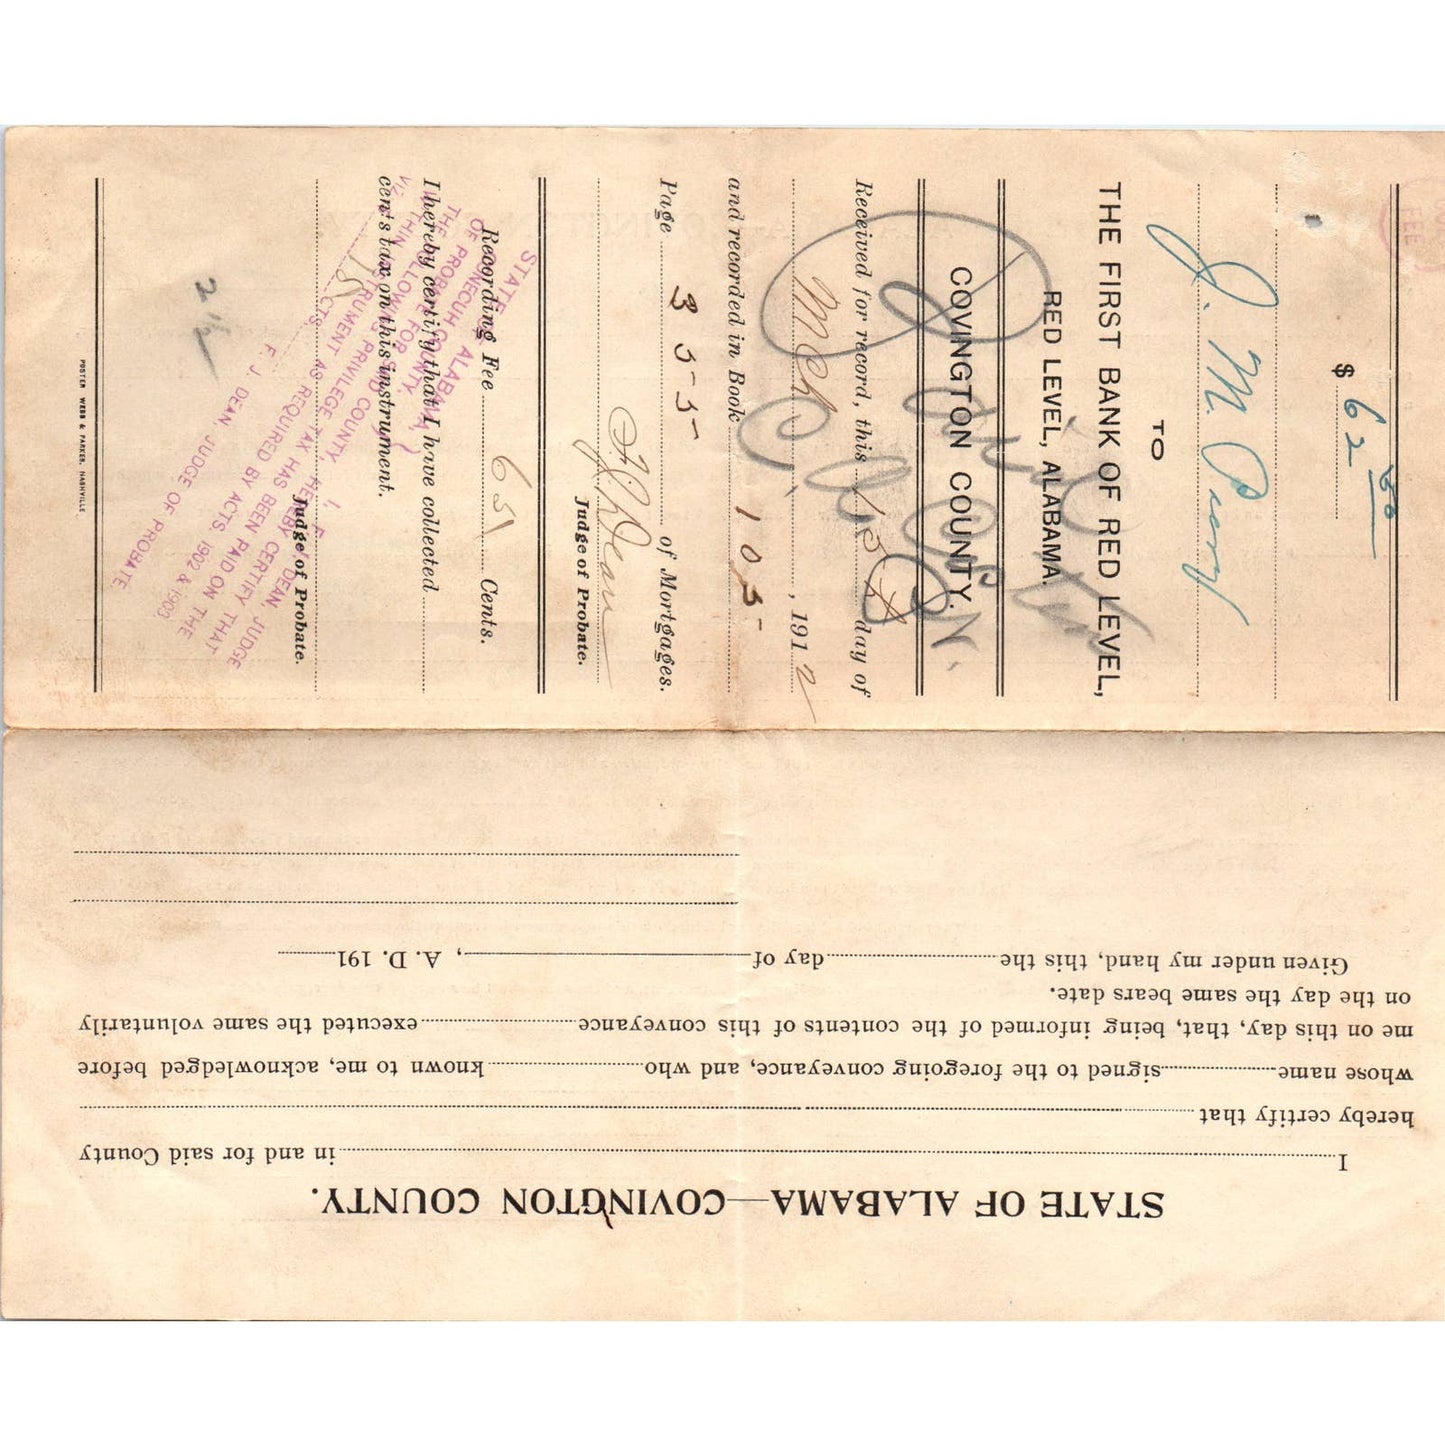 $ 62 00
J. M.
TO
THE FIRST BANK OF RED LEVEL,
RED LEVEL, ALABAMA.
COVINGTON COUNTY.
Received for record, this 15 day of
Mch, 1912
and recorded in Book 105
Page 355 of Mortgages.
F J Dean
Judge of Probate.
Recording Fee 65 Cents.
I hereby certify that I have collected
cents tax on this instrument.
Judge of Probate.
STATE OF ALABAMA,
CONECUH COUNTY. I, F. J. DEAN, JUDGE
OF PROBATE FOR SAID COUNTY, HEREBY CERTIFY THAT
THE FOLLOWING PRIVILEGE TAX HAS BEEN PAID ON THE
WITHIN INSTRUMENT AS REQUIRED BY ACTS. 1902 & 1903
VIZ 15 CTS.
F. J. DEAN, JUDGE OF PROBATE
2 1/2
FOSTER WEBB & PARKES, NASHVILLE
STATE OF ALABAMA—COVINGTON COUNTY.
I in and for said County
hereby certify that
whose name signed to the foregoing conveyance, and who known to me, acknowledged before
me on this day, that, being informed of the contents of this conveyance executed the same voluntarily
on the day the same bears date.
Given under my hand, this the day of , A. D. 191